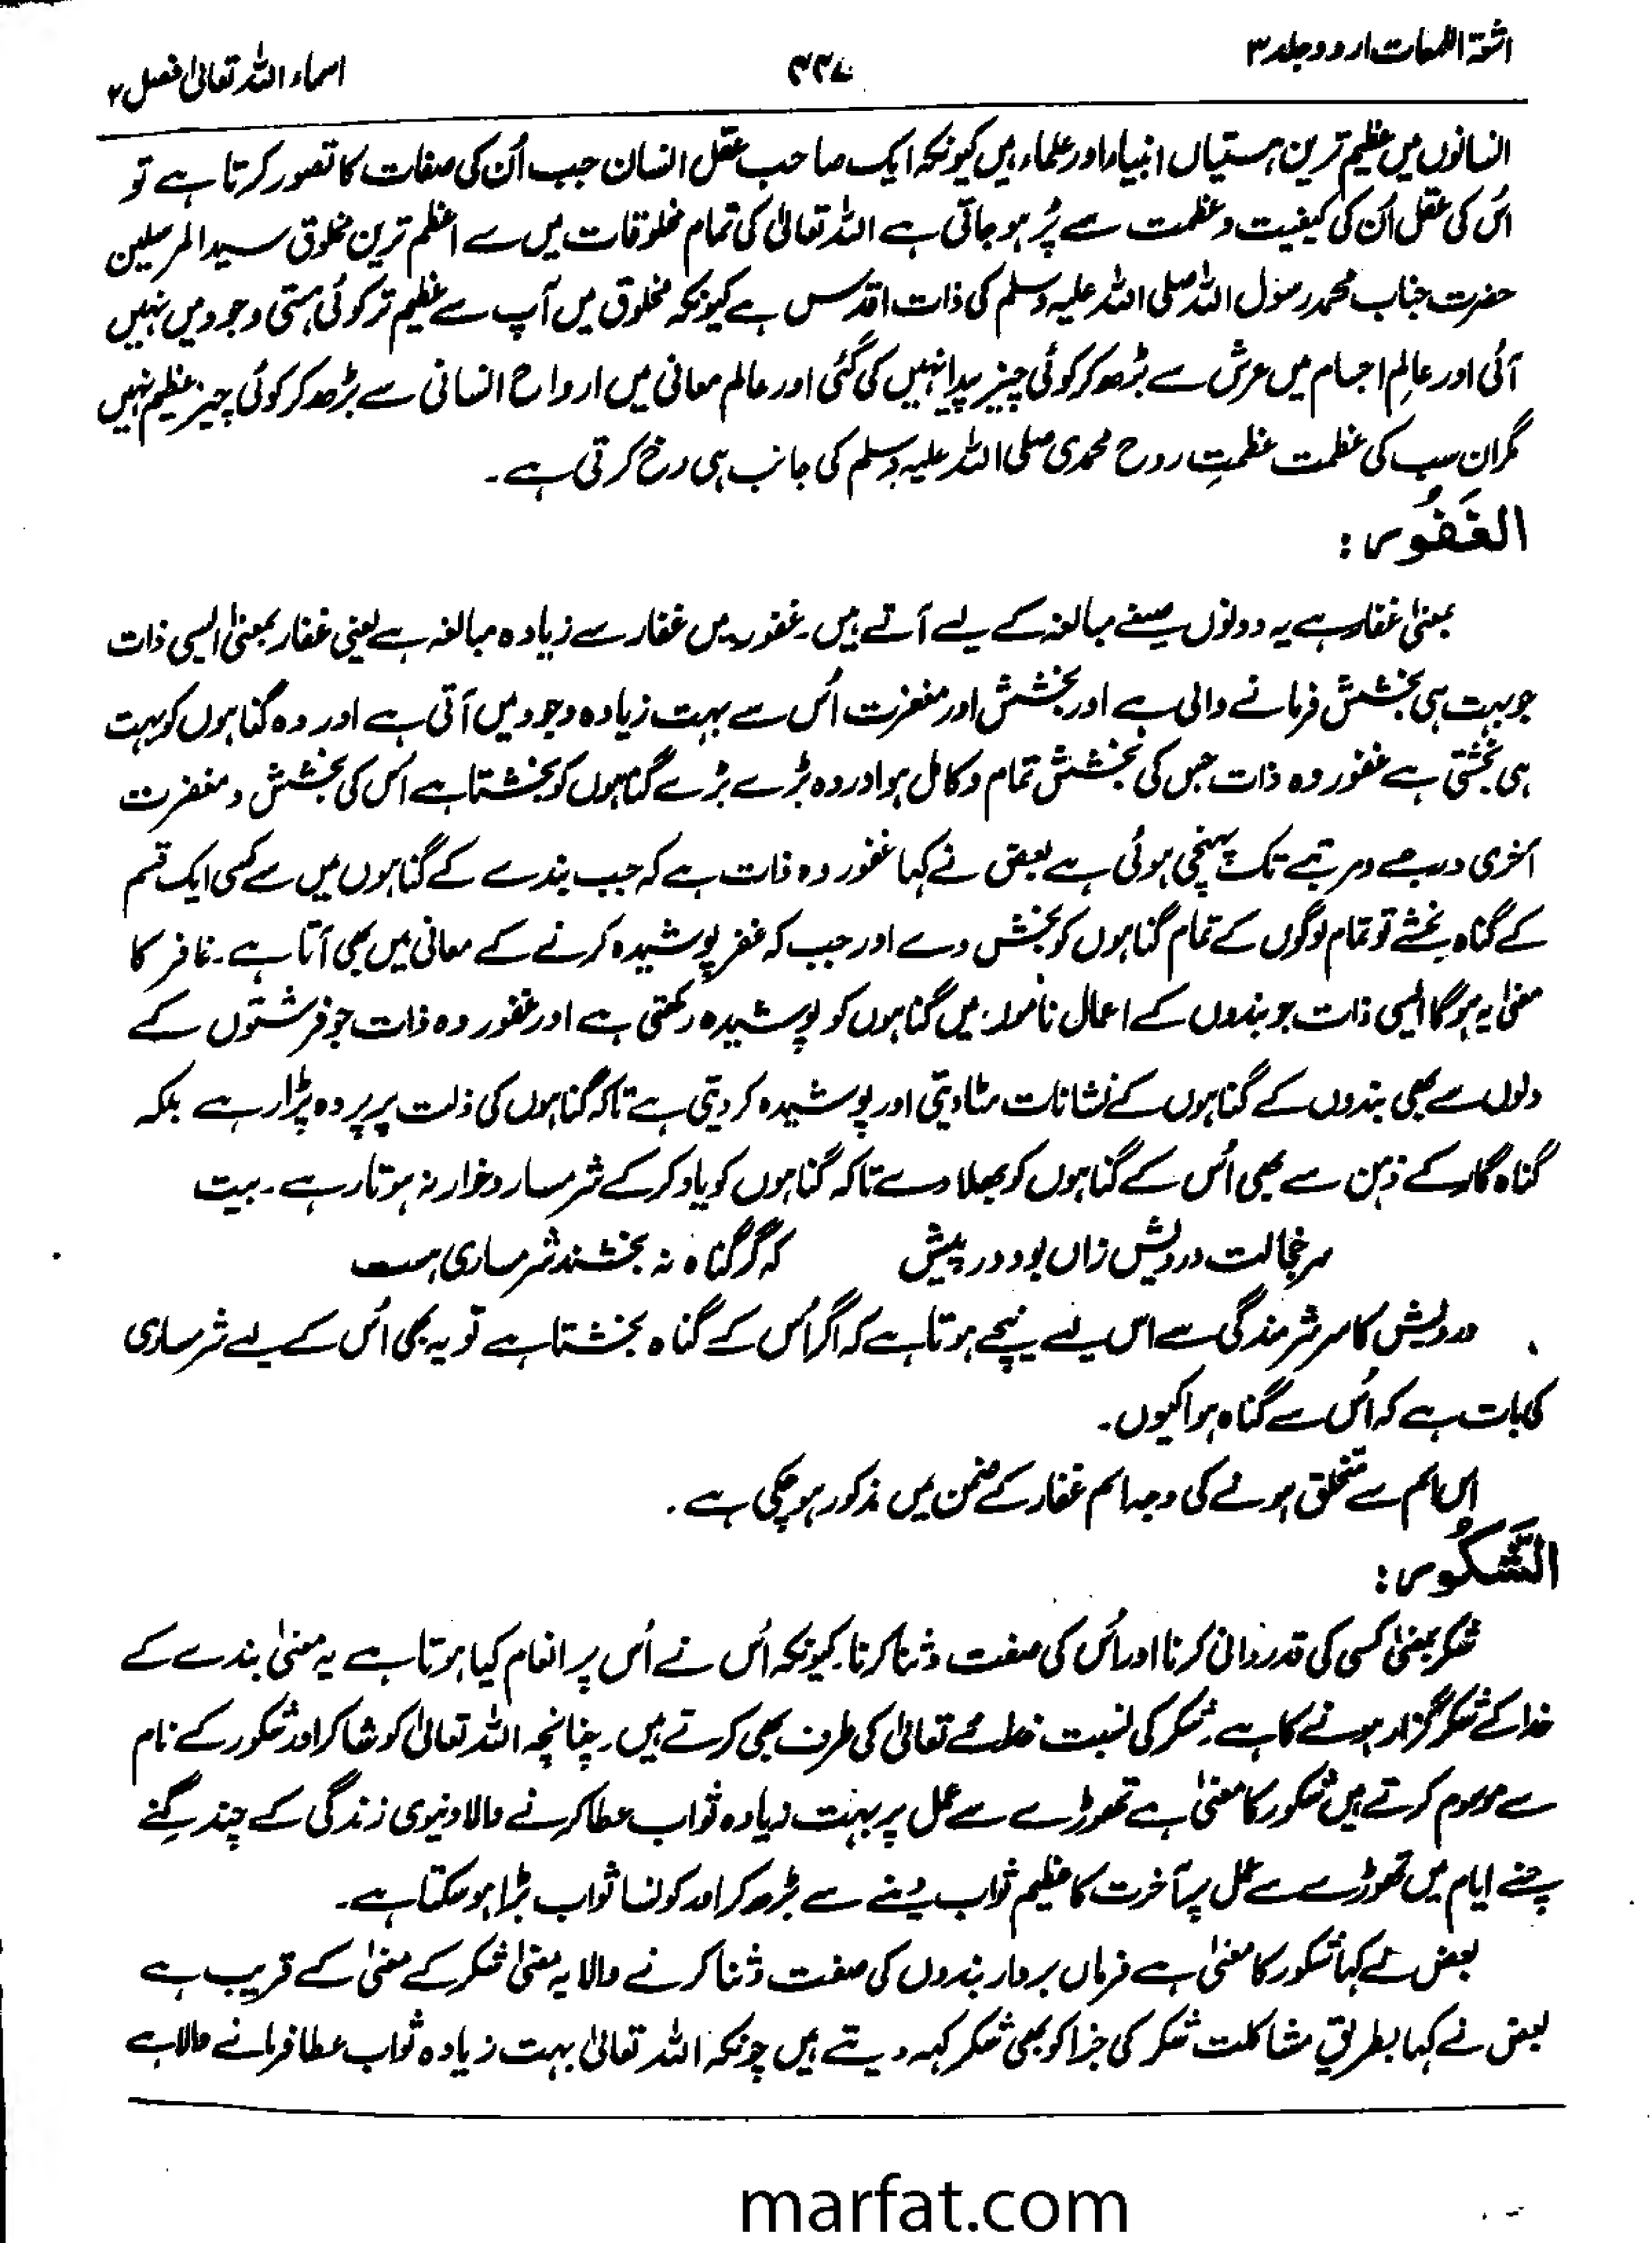 اشعۃ اللمعات اردو جلد ۳
۴۳۷
اسماء اللہ تعالیٰ فصل ۲
انسانوں میں عظیم ترین ہستیاں انبیاء اور علماء ہیں کیونکہ ایک صاحب عقل انسان جب اُن کی صفات کا تصور کرتا ہے تو
اُس کی عقل اُن کی کیفیت و عظمت سے پُر ہو جاتی ہے اللہ تعالیٰ کی تمام مخلوقات میں سے اعظم ترین مخلوق سید المرسلین
حضرت جناب محمد رسول اللہ صلی اللہ علیہ وسلم کی ذات اقدس ہے کیونکہ مخلوق میں آپ سے عظیم تر کوئی ہستی وجود میں نہیں
آئی اور عالمِ اجسام میں عرش سے بڑھ کر کوئی چیز پیدا نہیں کی گئی اور عالم معانی میں ارواح انسانی سے بڑھ کر کوئی چیز عظیم نہیں
مگر ان سب کی عظمت عظمتِ روح محمدی صلی اللہ علیہ وسلم کی جانب ہی رخ کرتی ہے۔
الغَفُوْر :
بمعنیٰ غفار ہے یہ دونوں صیغے مبالغہ کے لیے آتے ہیں۔ غفور میں غفار سے زیادہ مبالغہ ہے یعنی غفار بمعنیٰ ایسی ذات
جو بہت ہی بخشش فرمانے والی ہے اور بخشش اور مغفرت اُس سے بہت زیادہ وجود میں آتی ہے اور وہ گناہوں کو بہت
ہی بخشتی ہے غفور وہ ذات جس کی بخشش تمام و کامل ہو اور وہ بڑے بڑے گناہوں کو بخشتا ہے اُس کی بخشش و مغفرت
آخری درجے و مرتبے تک پہنچی ہوئی ہے بعض نے کہا غفور وہ ذات ہے کہ جب بندے کے گناہوں میں سے کسی ایک قسم
کے گناہ بخشے تو تمام لوگوں کے تمام گناہوں کو بخش دے اور جب کہ غفر پوشیدہ کرنے کے معانی میں بھی آتا ہے۔ غافر کا
معنیٰ یہ ہوگا ایسی ذات جو بندوں کے اعمال ناموں میں گناہوں کو پوشیدہ رکھتی ہے اور غفور وہ ذات جو فرشتوں کے
دلوں سے بھی بندوں کے گناہوں کے نشانات مٹا دیتی اور پوشیدہ کر دیتی ہے تاکہ گناہوں کی ذلت پر پردہ پڑا رہے بلکہ
گناہ گار کے ذہن سے بھی اُس کے گناہوں کو بھلا دے تاکہ گناہوں کو یاد کر کے شرمسار و خوار نہ ہوتا رہے۔ بیت
سر خجالت درویش زاں بود در پیش کہ گر گناہ نہ بخشند شرمساری ہست
درویش کا سر شرمندگی سے اس لیے نیچے ہوتا ہے کہ اگر اُس کے گناہ بخشتا ہے تو یہ بھی اُس کے لیے شرمساری
کی بات ہے کہ اُس سے گناہ ہوا کیوں۔
اس اسم سے متخلق ہونے کی وجہ اسم غفار کے ضمن میں مذکور ہو چکی ہے۔
الشَّكُوْر :
شکر بمعنیٰ کسی کی قدردانی کرنا اور اُس کی صفت و ثنا کرنا۔ کیونکہ اُس نے اُس پر انعام کیا ہوتا ہے یہ معنیٰ بندے کے
خدا کے شکر گزار ہونے کا ہے۔ شکر کی نسبت خدائے تعالیٰ کی طرف بھی کرتے ہیں۔ چنانچہ اللہ تعالیٰ کو شاکر اور شکور کے نام
سے موسوم کرتے ہیں شکور کا معنیٰ ہے تھوڑے سے عمل پر بہت زیادہ ثواب عطا کرنے والا دنیوی زندگی کے چند گنے
چنے ایام میں تھوڑے سے عمل پر آخرت کا عظیم ثواب دینے سے بڑھ کر اور کونسا ثواب بڑا ہو سکتا ہے۔
بعض نے کہا شکور کا معنیٰ ہے فرماں بردار بندوں کی صفت و ثنا کرنے والا یہ معنیٰ شکر کے معنیٰ کے قریب ہے
بعض نے کہا بطریقِ مشاکلت شکر کی جزا کو بھی شکر کہہ دیتے ہیں چونکہ اللہ تعالیٰ بہت زیادہ ثواب عطا فرمانے والا ہے
marfat.com